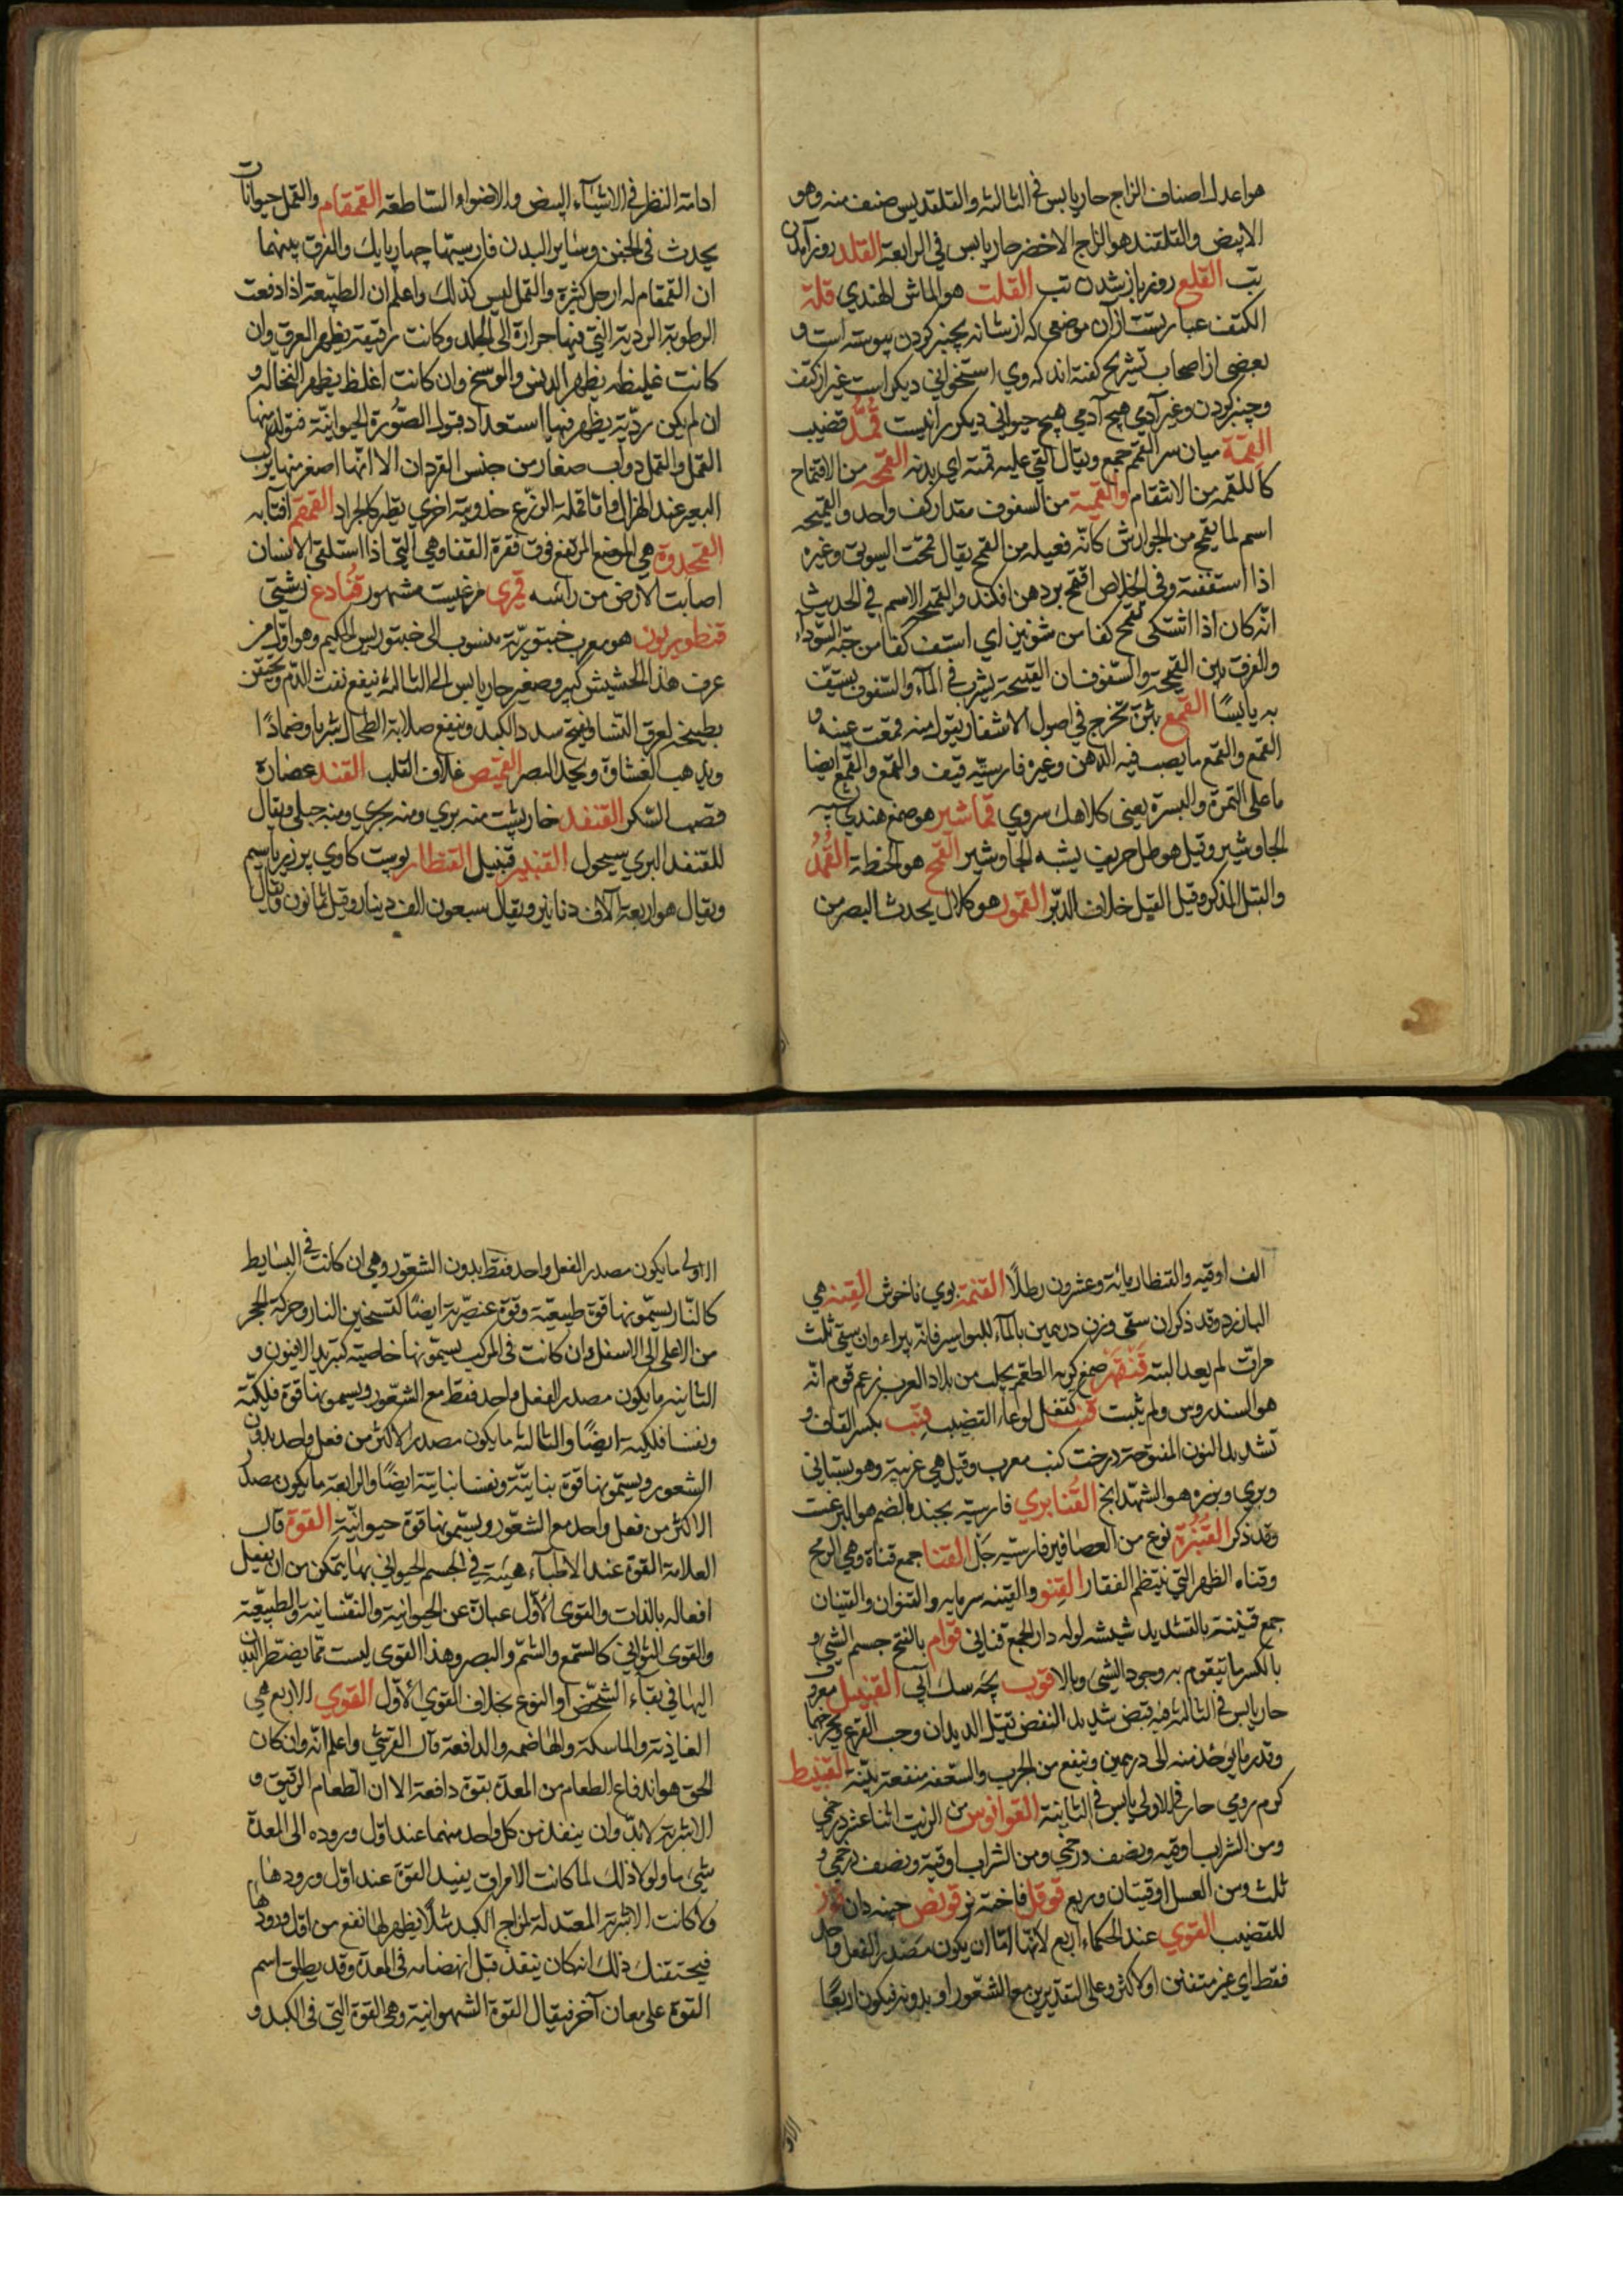 هو اعدل اصناف الزاج حار يابس فى الثالثة والقلقديس صنف منه وهو
الابيض والقلقند هو الزاج الاخضر حار يابس فى الرابعة القلد روز آمدن
تب القلع روز باز شدن تب القلت هو الماش الهندي قلة
الكتف عبارتست از آن موضعى كه از شانه بچنبر كردن پيوسته است و
بعضى از اصحاب تشريح كفته اند كه وي استخوانى ديكر است غير از كتف
وچنبر كردن وغير آدمى هيچ آدمى هيچ حيوانى ديكر را نيست قمد قضيب
القمة ميان سر القمم جمع ويقال القى عليه قمته اى بدنه القمحه من الاقتماح
كاللقمه من الالتقام والقمية من السفوف مقدار كف واحد والقميحه
اسم لما يقمح من الجوارش كانه فعيله من القمح يقال قمحت السويق وغيره
اذا استففته وفى الخلاص اقتمح بردهن افكند والقميحه الاسم فى الحديث
انه كان اذا اشتكى تقمح كفا من شونيز اي استف كفا من حبة السوداء
والفرق بين القميحة والسفوف ان القميحة يشرب فى المآء والسفوف يستف
به يابسًا القمع بثرة تخرج فى اصول الاشفار يقول منه قمعت عينه و
القمع والقمع ما يصب فيه الدهن وغيره فارسيته قيف والقمع والقمع ايضا
ما على التمرة والبسرة يعنى كلاهك سروى قماشير هو صمغ هندي شبيه
الجاوشير وقيل هو طل حريف يشبه الجاوشير القمح هو الحنطة القمد
والقبل الذكر وقيل القبل خلاف الدبر القمور هو كلال يحدث البصر من
ادامة النظر فى الاشيآء البيض والاضواء الساطعة القمقام والقمل حيوانات
يحدث فى الجفن وساير البدن فارسيتها چهارپايك والفرق بينهما
ان القمقام له ارجل كثيرة والقمل ليس كذلك واعلم ان الطبيعة اذا دفعت
الرطوبة الردية التى فيها حرارة الى الجلد وكانت رقيقة يظهر العرق وان
كانت غليظه يظهر الدرن والوسخ وان كانت اغلظ يظهر النخاله و
ان لم يكن ردّية يظهر فيها استعداد قبول الصّورة الحيوانيّة فتولد منها
القمل والقمل دواب صغار من جنس القردان الا انّها اصغر منها يركب
البعير عند الهزال واما قملة الزرع فدويبة اخري يطير كالجراد القمقم آفتابه
القمحدوة هى الموضع المرتفع فوق فقرة القفا وهى التى اذا استلقى الانسان
اصابت الارض من رأسه قمري مرغيست مشهور قمادع زشتى
قنطوريون هو معرب خبتوريّة منسوب الى خبتوريس الحكيم وهو اول من
عرف هذا الحشيش كبير وصغير حار يابس الى الثالثة ينفع نفث الدّم ويحتقن
بطبيخه لعرق النّسا ويفتح سدد الكبد وينفع صلابة الطحال شربا وضمادًا
ويذهب الغشاوة ويحد البصر القميص غلاف القلب القند عصارة
قصب السّكر القنفذ خارپشت منه بري ومنه بحري ومنه جبلى ويقال
للقنفذ البرى سيحول القنبير قنبيل القنطار پوست كاوي پر زر يا سيم
ويقال هو اربعة آلاف دنانير ويقال سبعون الف دينار وقيل ثمانون ويقال
الف اوقيه والقنطار مائة وعشرون رطلًا القنمة بوي ناخوش القنه هى
البارزد وقد ذكر ان سقى وزن درهمين بالمآء للبواسير فانه يبراء وان سقى ثلث
مرات لم يعد البتة قنقهر صمغ كريه الطعم يجلب من بلاد العرب زعم قوم انّه
هو السندروس ولم يثبت قنب كقفل لوعاء القضيب قنّب بكسر القاف و
تشديد النون المفتوحة درخت كنب معرب وقيل هى غربية وهو بستانى
وبري وبزره هو الشهدانج القنابري فارسيته بجند بالضم هو البرغست
وقد ذكر القنبرة نوع من العصافير فارسيته چكل القنا جمع قناة وهى الرمح
وقناه الظهر التى ينتظم الفقار القنو والقينه سرمايه والقنوان والقينان
جمع قنينة بالتشديد شيشه لوله دار الجمع قنانى قوام بالفتح جسم الشئ و
بالكسر ما يتقوم به وجود الشئ وبالا قوب بچه سك آبى القنبيل معرف
حار يابس فى الثالثة فيه قبض شديد النفض تقتل الديدان وحب القرع ويخرجهما
وقدر ما يؤخذ منه الى درهمين وينفع من الجرب والسعفه منفعة بينة القنبيط
كرم رومى حار فى الاولى يابس فى الثانية القوانوس من الزيت اثنا عشر درخمى
ومن الشراب اوقيه ونصف درخمى ومن الشراب اوقية ونصف درخمى و
ثلث ومن العسل اوقيتان وربع قوقل فاخته نر قونص چينه دان
للقضيب القوي عند الحكماء اربع لانّها امّا ان يكون مصدر الفعل واحد
فقط اي غير متفنن او لاكثر وعلى التقديرين مع الشعور او بدونه فيكون اربعًا
الاولى ما يكون مصدر الفعل واحد فقط بدون الشعّور وهى ان كانت فى البسايط
كالنّار يسمّونها قوة طبيعيّة وقوة عنصّرية ايضًا كتسخين النار وحركة الحجر
من الاعلى الى الاسفل وان كانت فى المركب يسمّونها خاصيّة كتبريد الافيون و
الثانيه ما يكون مصدر الفعل واحد فقط مع الشّعور ويسمّونها قوة فلكيّة
ونفسا فلكية ايضًا والثالثة ما يكون مصدر لاكثر من فعل واحد بدون
الشعور ويسمّونها قوة نباتيّة ونفسا نباتيّة ايضًا والرابعة ما يكون مصدر
الاكثر من فعل واحد مع الشعّور ويسمّونها قوة حيوانيّة القوة قال
العلامة القوة عند الاطبآء هيئة فى الجسم الحيوانى بها يتمكن من ان يفعل
افعاله بالذات والقوى الأول عبارة عن الحيوانية والنفسانية والطبيعّية
والقوى الثوانى كالسّمع والشّم والبصر وهذا القوى ليست ممّا يضطر البدن
اليها فى بقآء الشخص او النوع بخلاف القوى الأول القوي الاربع هى
الغاذية والماسكة والهاضمه والدافعة قال القرشى واعلم انّه وان كان
الحق هو اندفاع الطعام من المعدة بقوة دافعة الا ان الطعام الرقيق و
الاشربة لا بدّ وان ينفذ من كل واحد منهما عند اول وروده الى المعدة
شئ ما ولولا ذلك لما كانت الامراق يفيد القوة عند اول ورودها
ولا كانت الاشربة المعتدلة لمزاج الكبد مثلًا يظهر لها نفع من اول ورودها
فيحتقنك ذلك انه كان ينفذ قبل انهضامه فى المعدة وقد يطلق اسم
القوة على معان آخر فيقال القوة الشهوانية وهى القوة التى فى الكبد و